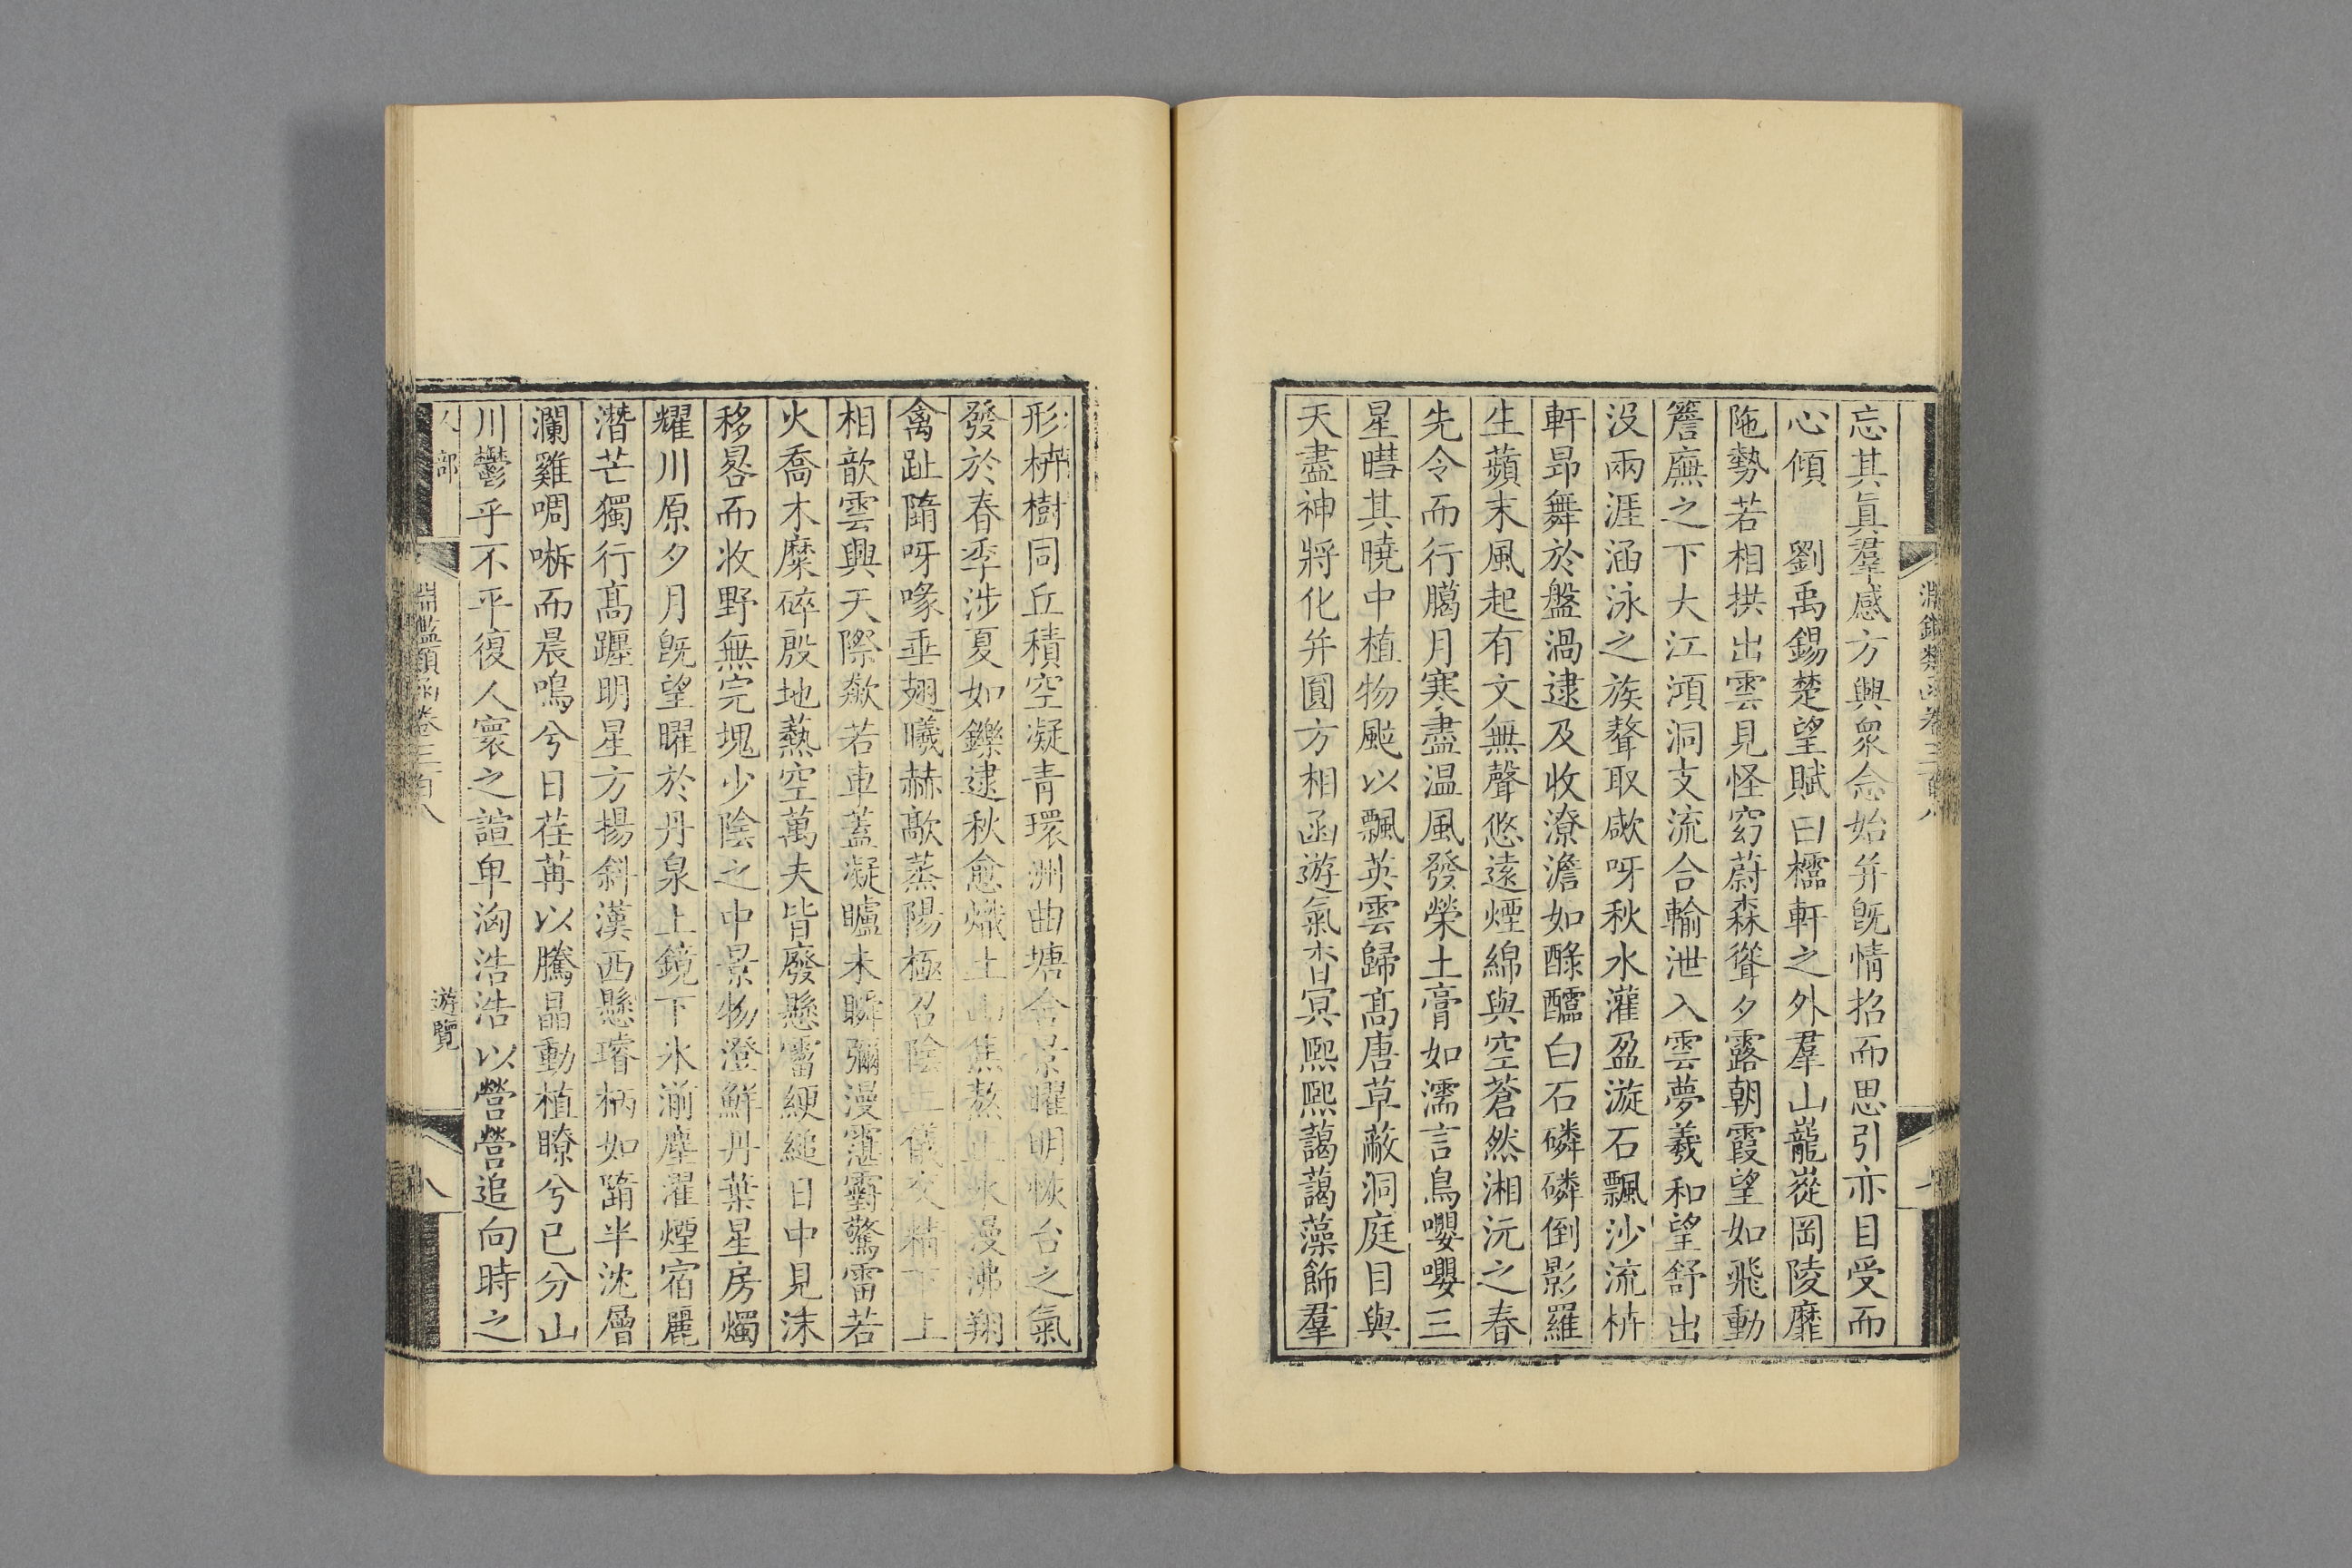 忘其眞羣感方興衆念始并旣情招而思引亦目受而
心傾　劉禹錫楚望賦曰櫺軒之外羣山巃嵸岡陵靡
陁勢若相拱出雲見怪窈蔚森聳夕露朝霞望如飛動
簷廡之下大江澒洞支流合輸泄入雲夢羲和望舒出
没兩涯涵泳之族聱取歑呀秋水灌盈漩石飄沙流枿
軒昂舞於盤渦逮及收潦澹如醁醽白石磷磷倒影羅
生蘋末風起有文無聲悠遠煙綿與空蒼然湘沅之春
先令而行臈月寒盡温風發榮土膏如濡言鳥嚶嚶三
星嘒其曉中植物颭以飄英雲歸髙唐草蔽洞庭目與
天盡神將化并圓方相函遊氣杳冥熙熙藹藹藻飾羣
形枿樹同丘積空凝青環洲曲塘含景曜明恢台之氣
發於春季涉夏如鑠逮秋愈熾土山焦熬止水漫沸翔
禽跕墮呀喙垂翅曦赫歊蒸陽極召陰二儀交精下上
相歆雲興天際歘若車蓋凝矑未瞬彌漫霮䨴驚雷若
火喬木糜碎殷地爇空萬夫皆廢懸霤綆縋日中見沫
移晷而收野無完塊少陰之中景物澄鮮丹葉星房燭
耀川原夕月旣望曜於丹泉上鏡下氷湔塵濯煙宿麗
潛芒獨行髙躔明星方揚斜漢西懸璿柄如墮半沈層
瀾雞啁哳而晨鳴兮日荏苒以騰晶動植瞭兮已分山
川鬱乎不平復人寰之諠卑洶浩浩以營營追向時之
人部
淵鑑類函卷三百八
遊覽
八